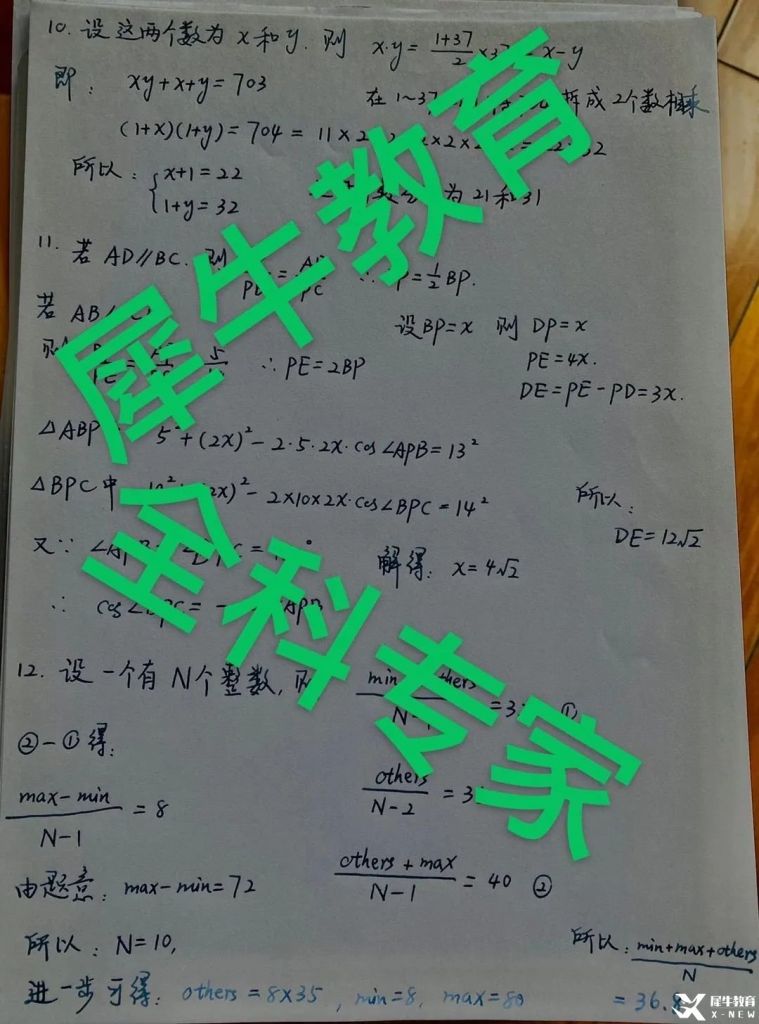 10. 设这两个数为 x 和 y. 则 x·y = (1+37)/2 ×37 x-y
即: xy+x+y=703
在1~37 拆成2个数相乘
(1+x)(1+y)=704=11×2
所以: { x+1=22
1+y=32
为21和31
11. 若 AD∥BC. 则 = ∴ =1/2 BP.
若 AB
设BP=x 则 DP=x
则 ∴ PE=2BP
PE=4x.
DE=PE-PD=3x.
△ABP 5²+(2x)²-2·5·2x·cos∠APB=13²
△BPC中 -2×10×2x·cos∠BPC=14²
所以:
DE=12√2
又∵
解得: x=4√2
∴ cos∠BPC=-
12. 设一个有N个整数,
②-①得:
(max-min)/(N-1) = 8
others/(N-2)
由题意: max-min=72
(others+max)/(N-1) = 40 ②
所以: N=10,
所以: (min+max+others)/N
进一步可得: others=8×35, min=8, max=80
=36.8
犀牛教育
全科专家
犀牛教育
X-NEW